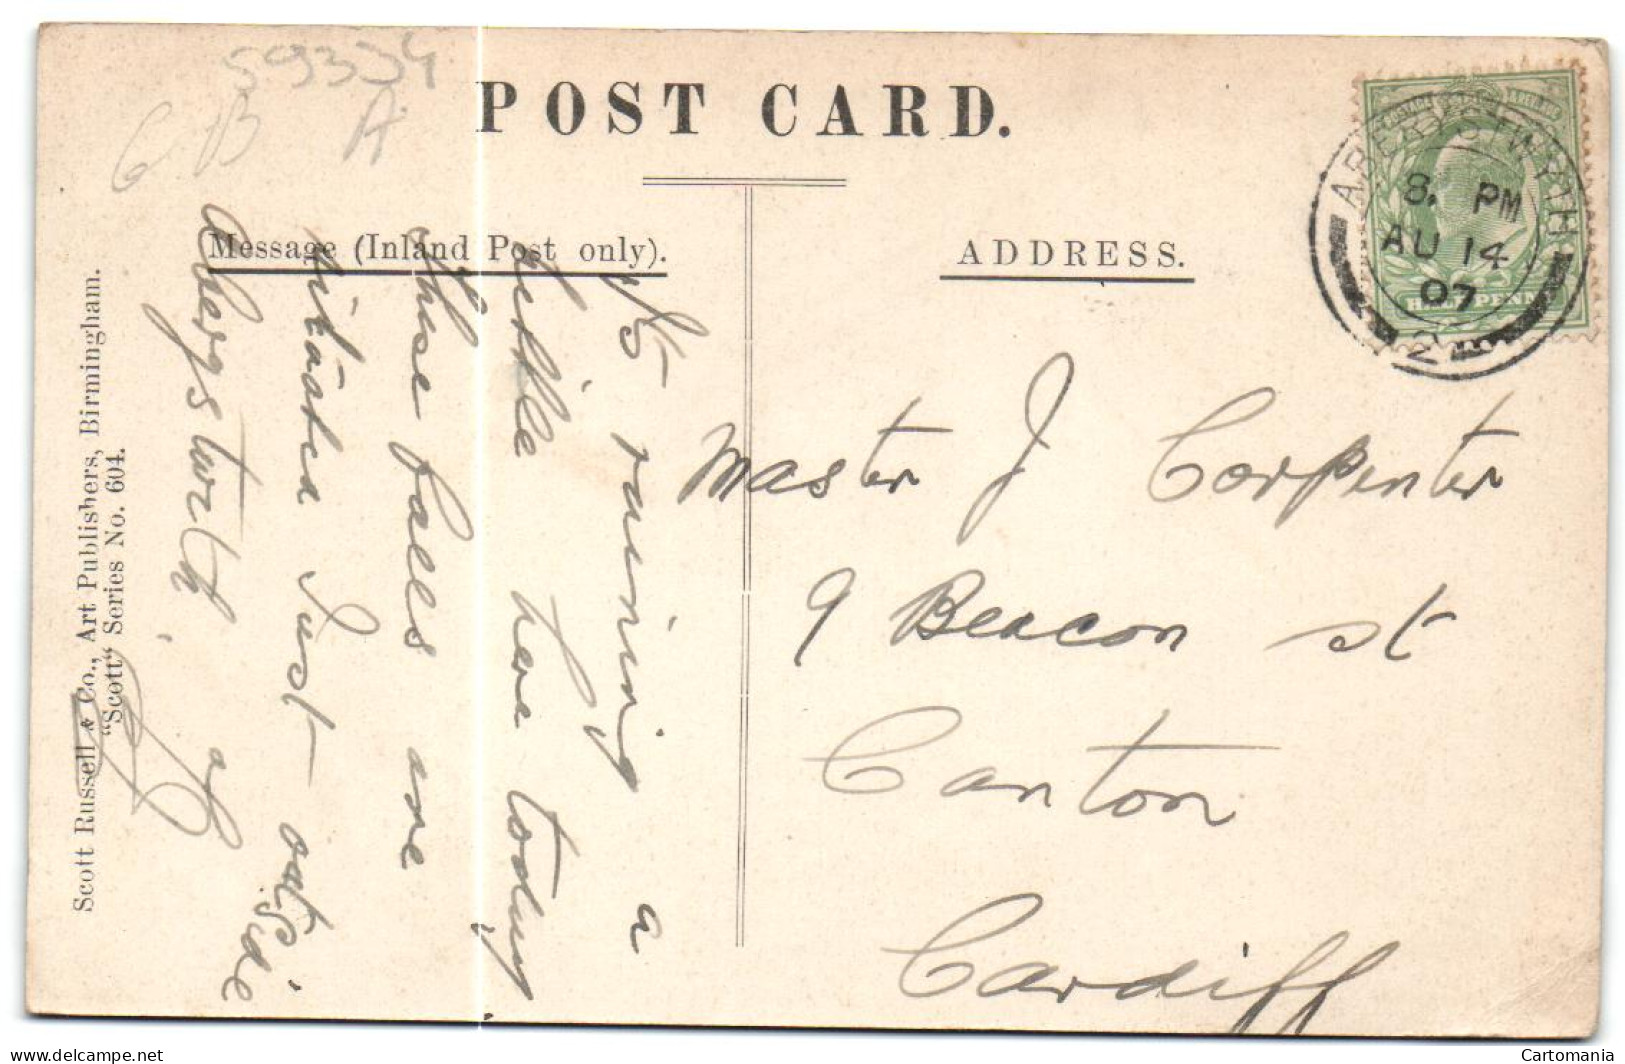 59334
GB A
POST CARD.
Message (Inland Post only).
ADDRESS.
ABERYSTWYTH
8. PM
AU 14
07
HALFPENNY
its raining a
little here today
these falls are
situated Just outside
Aberystwith.
Master J Carpenter
9 Beacon st
Canton
Cardiff
Scott Russell & Co., Art Publishers, Birmingham.
"Scott" Series No. 604.
Cartomania
www.delcampe.net